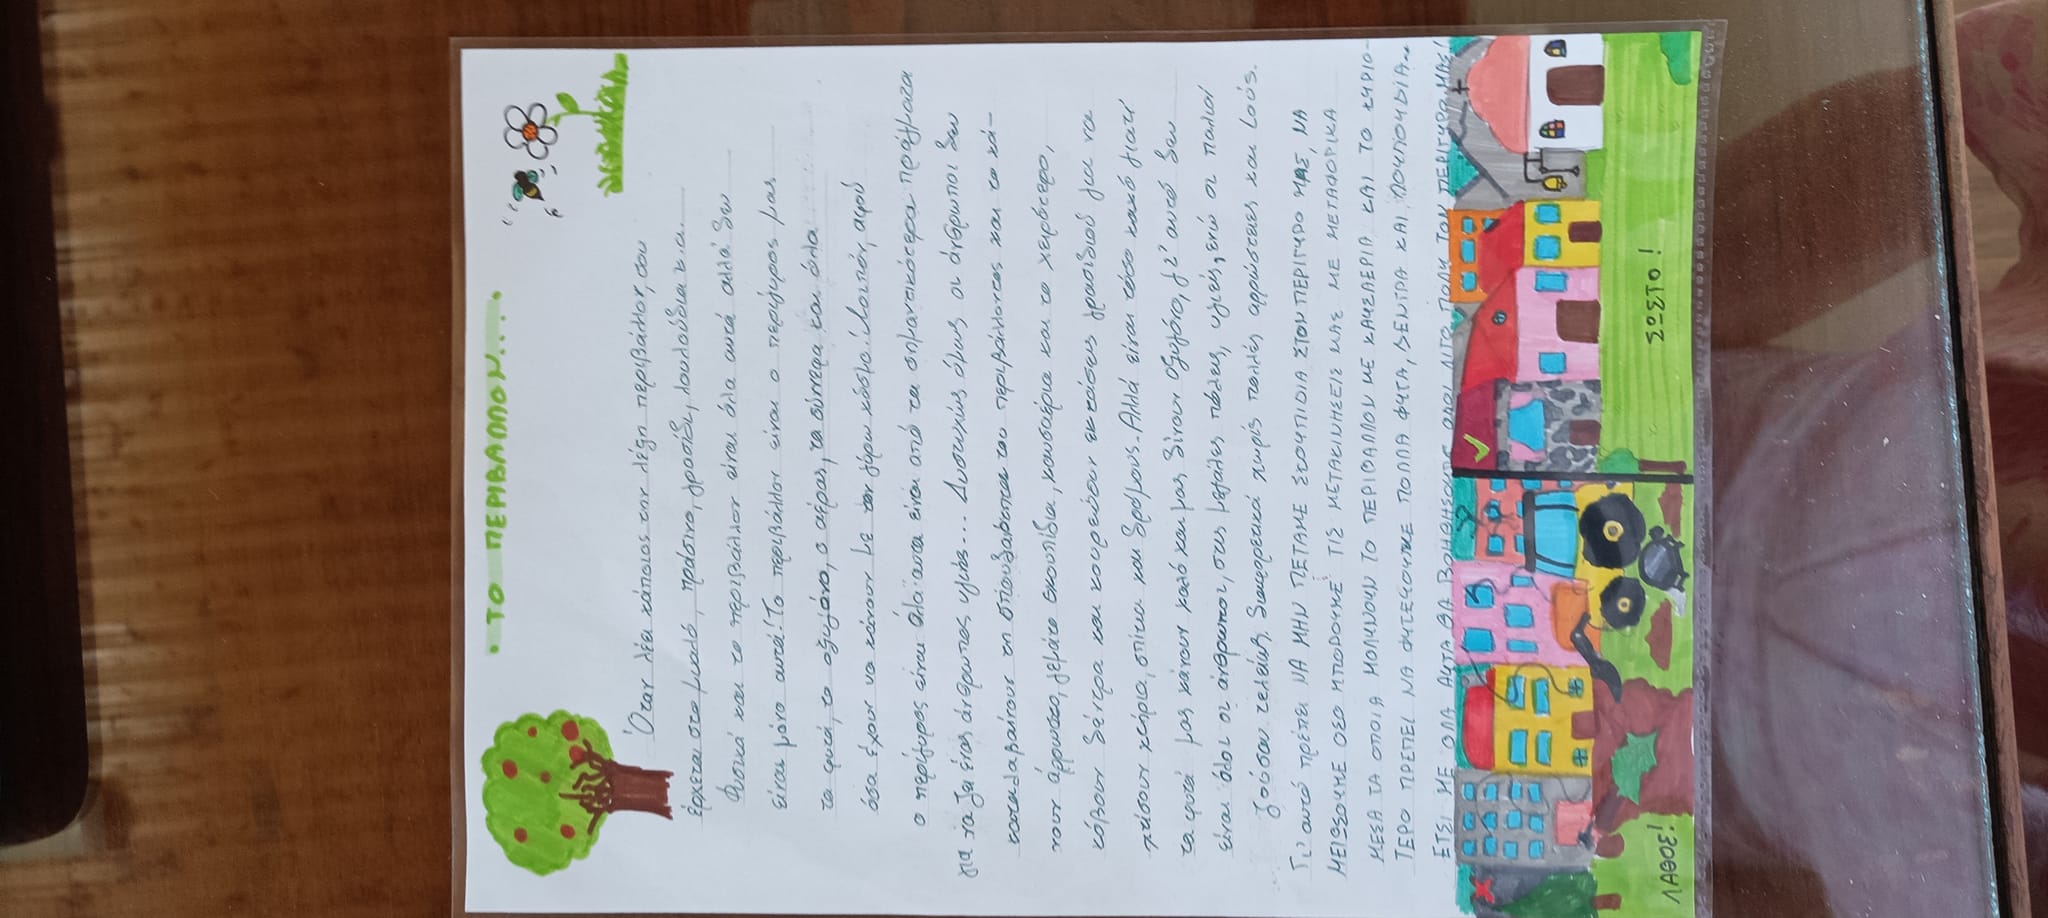 • ΤΟ ΠΕΡΙΒΑΛΛΟΝ....
Όταν λέει κάποιος την λέξη περιβάλλον, σου
έρχεται στο μυαλό, πράσινο, γρασίδι, λουλούδια κ.α.
Φυσικά και το περιβάλλον είναι όλα αυτά αλλά δεν
είναι μόνο αυτά! Το περιβάλλον είναι ο περίγυρος μας
τα φυτά, το οξυγόνο, ο αέρας, τα σύννεφα και όλα
όσα έχουν να κάνουν με τον γύρω κόσμο. Λοιπόν, αφού
ο περίγυρος είναι όλα αυτά είναι από τα σημαντικότερα πράγματα
για να ζει ένας άνθρωπος υγιές... Δυστυχώς όμως οι άνθρωποι δεν
καταλαβαίνουν τη σπουδαιότητα του περιβάλλοντος και το κά-
νουν άρρωστο, γεμάτο σκουπίδια, καυσαέρια και το χειρότερο,
κόβουν δέντρα και κουρεύουν εκτάσεις γρασιδιού για να
χτίσουν κτήρια, σπίτια και δρόμους. Αλλά είναι τόσο κακό γιατί
τα φυτά μας κάνουν καλό και μας δίνουν οξυγόνο, γι' αυτό δεν
είναι όλοι οι άνθρωποι, στις μεγάλες πόλεις, υγιές, ενώ οι παλιοί
ζούσαν τελείως διαφορετικά χωρίς πολλές αρρώστιες και ιούς.
Γι' αυτό πρέπει ΝΑ ΜΗΝ ΠΕΤΑΜΕ ΣΚΟΥΠΙΔΙΑ ΣΤΟΝ ΠΕΡΙΓΥΡΟ ΜΑΣ, ΝΑ
ΜΕΙΩΣΟΥΜΕ ΟΣΟ ΜΠΟΡΟΥΜΕ ΤΙΣ ΜΕΤΑΚΙΝΗΣΕΙΣ ΜΑΣ ΜΕ ΜΕΤΑΦΟΡΙΚΑ
ΜΕΣΑ ΤΑ ΟΠΟΙΑ ΜΟΛΥΝΟΥΝ ΤΟ ΠΕΡΙΒΑΛΛΟΝ ΜΕ ΚΑΥΣΑΕΡΙΑ ΚΑΙ ΤΟ ΚΥΡΙΟ-
ΤΕΡΟ ΠΡΕΠΕΙ ΝΑ ΦΥΤΕΨΟΥΜΕ ΠΟΛΛΑ ΦΥΤΑ, ΔΕΝΤΡΑ ΚΑΙ ΛΟΥΛΟΥΔΙΑ...
ΕΤΣΙ ΜΕ ΟΛΑ ΑΥΤΑ ΘΑ ΒΟΗΘΗΣΟΥΜΕ ΠΟΛΥ ΤΟΝ ΠΕΡΙΓΥΡΟ ΜΑΣ!
ΛΑΘΟΣ!
ΣΩΣΤΟ!